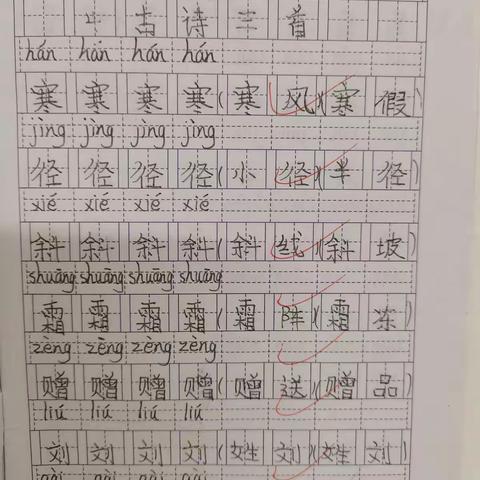 4 古诗三首
hán hán hán hán
寒 寒 寒 寒(寒风)(寒假)
jìng jìng jìng jìng
径 径 径 径(小径)(半径)
xié xié xié xié
斜 斜 斜 斜(斜线)(斜坡)
shuāng shuāng shuāng shuāng
霜 霜 霜 霜(霜阵)(霜冻)
zèng zèng zèng zèng
赠 赠 赠 赠(赠送)(赠品)
liú liú liú liú
刘 刘 刘 刘(姓刘)(姓刘)
gài gài gài gài